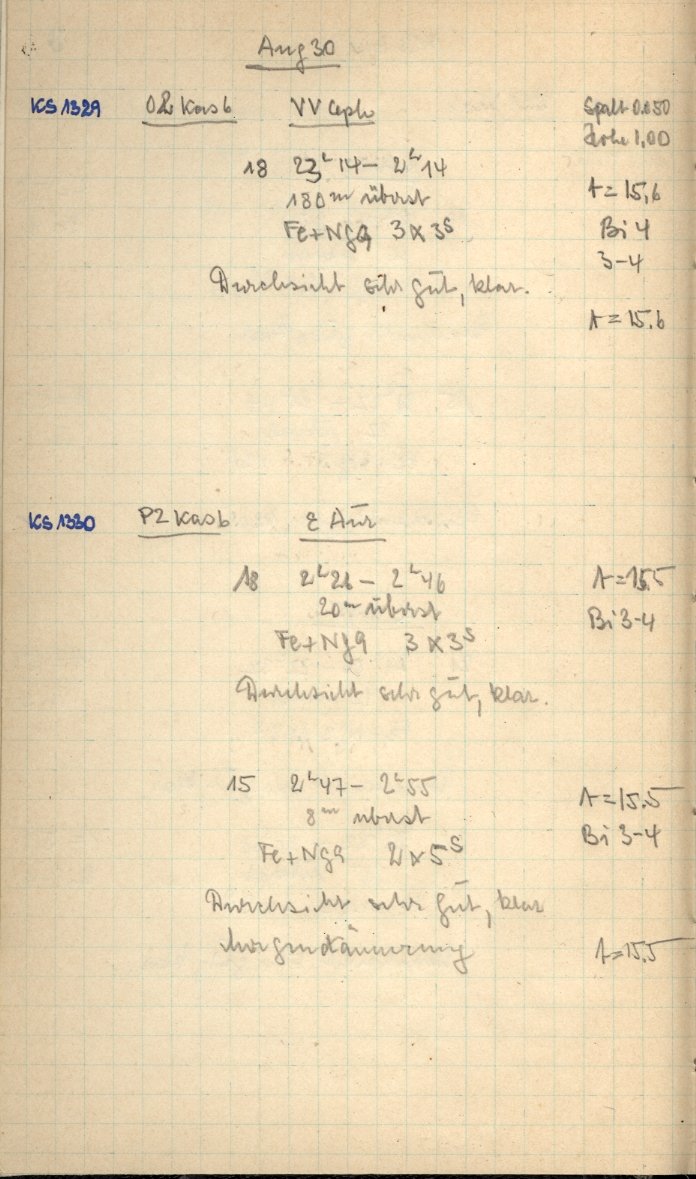 Aug 30
KS 1329 O2 Kas b VV Ceph Spalt 0.050
Höhe 1,00
18 23ʰ14 – 2ʰ14
180ᵐ überst A = 15,6
Fe+NgA 3 x 3ˢ Bi 4
3-4
Durchsicht sehr gut, klar.
A = 15.6
KS 1330 P2 Kas b ε Aur
18 2ʰ26 – 2ʰ46 A = 15.5
20ᵐ überst Bi 3-4
Fe+NgA 3 x 3ˢ
Durchsicht sehr gut, klar.
15 2ʰ47 – 2ʰ55 A = 15.5
8ᵐ überst Bi 3-4
Fe+NgA 2 x 5ˢ
Durchsicht sehr gut, klar
Morgendämmerung A = 15.5